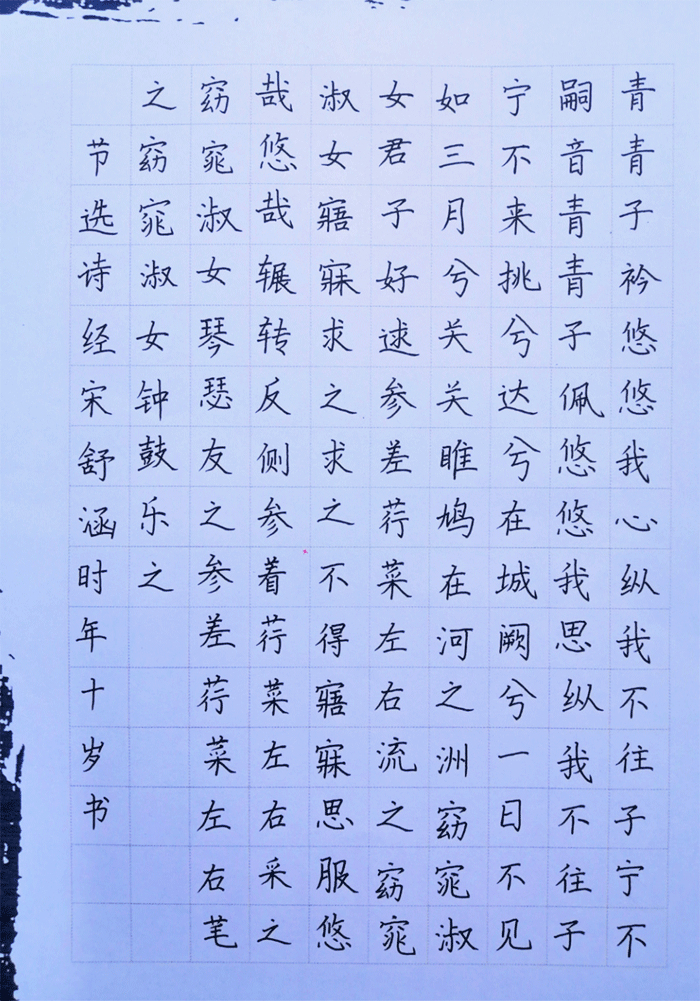 青青子衿悠悠我心纵我不往子宁不
嗣音青青子佩悠悠我思纵我不往子
宁不来挑兮达兮在城阙兮一日不见
如三月兮关关雎鸠在河之洲窈窕淑
女君子好逑参差荇菜左右流之窈窕
淑女寤寐求之求之不得寤寐思服悠
哉悠哉辗转反侧参着荇菜左右采之
窈窕淑女琴瑟友之参差荇菜左右芼
之窈窕淑女钟鼓乐之
节选诗经宋舒涵时年十岁书